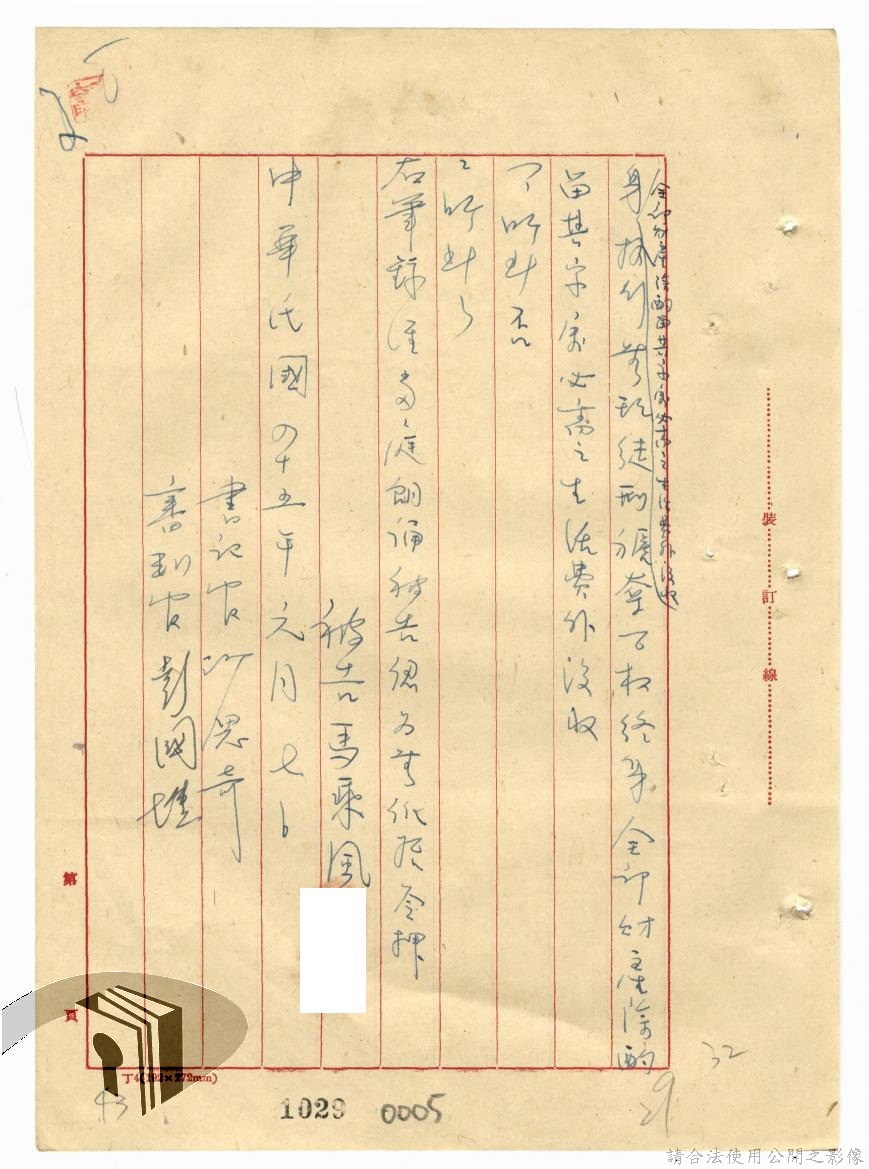 全部財產除酌留其家屬必需之生活費外沒收
身執行無期徒刑褫奪公权終身全部財產除酌
留其家屬必需之生活費外沒收
右筆錄經當庭朗誦被告認為無訛後簽押
被告馬乘風
中華民國四十五年元月七日
書記官
審判官彭國壎
裝訂線
第頁
丁4(192×272mm)
1029 0005
32
29
43
請合法使用公開之影像